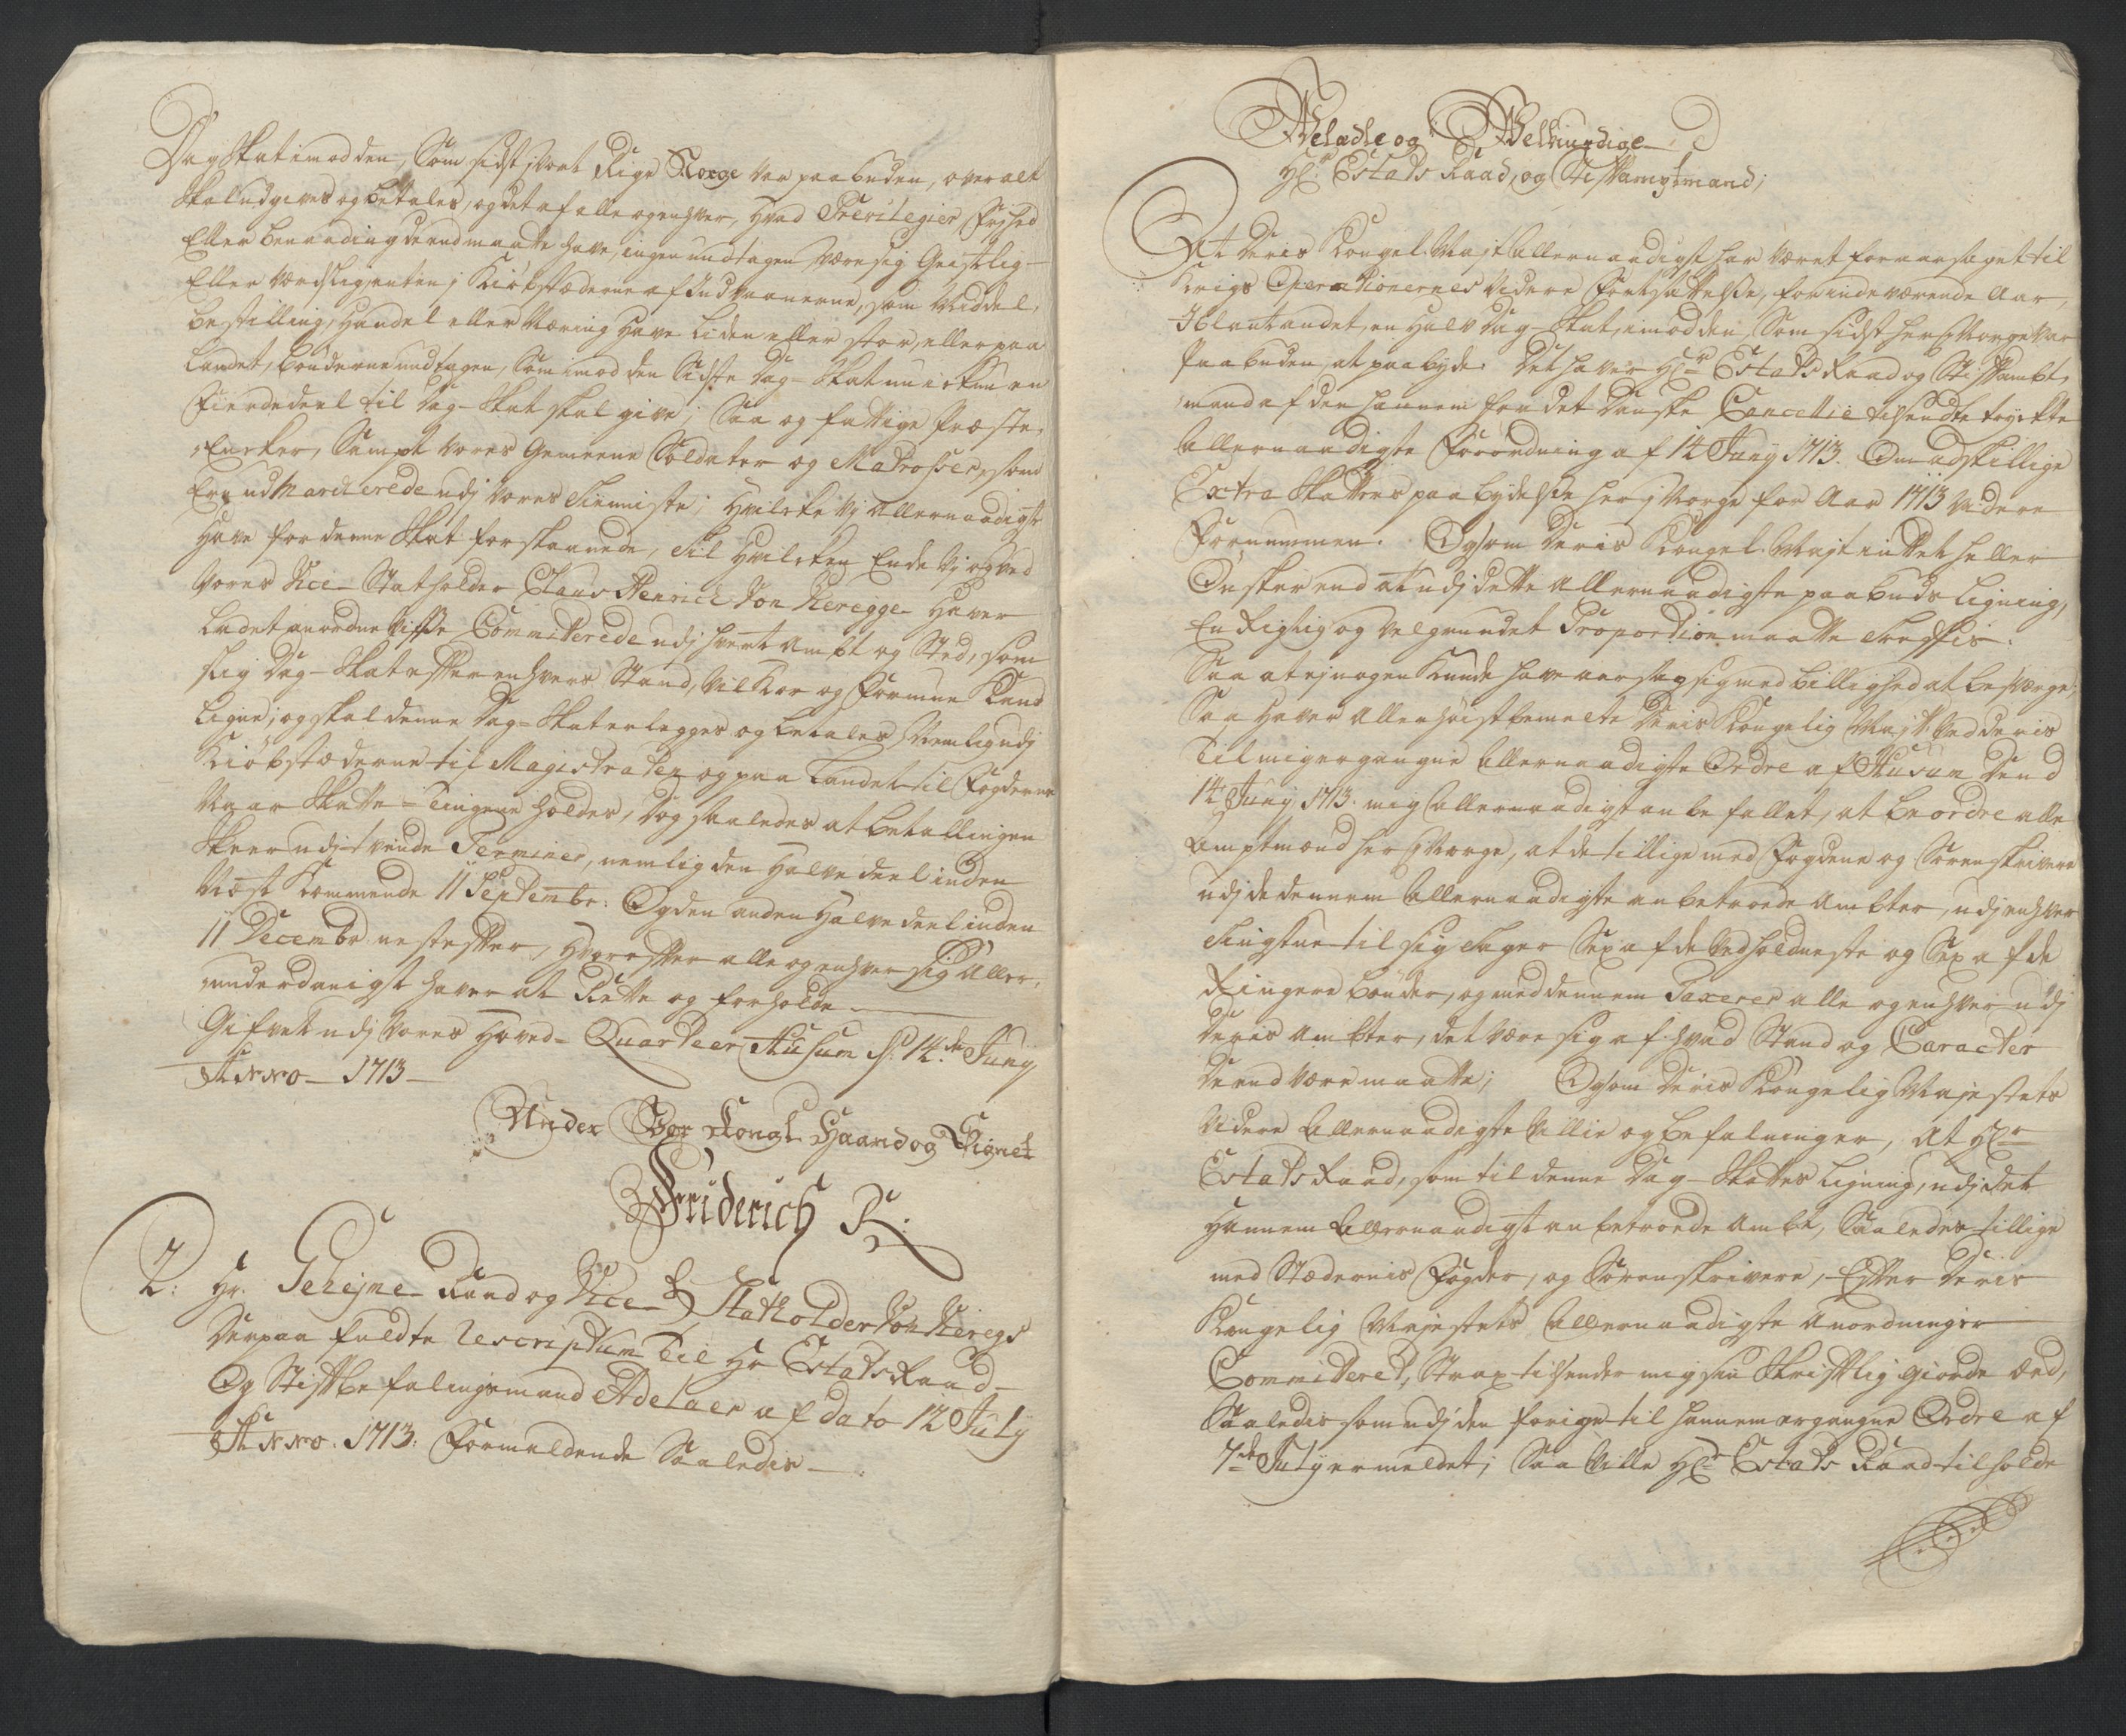 Dag Skat imod den, Som sidst i Vort Rige Norge var paabuden, over alt
Skal udgives og betales, og det af alle og enhver, hvad Previlegier Frihed
Eller benaading de end maatte have, ingen undtagen være sig Geistlig
Eller Verdslig enten i Kiøbstæderne af Indvaanerne, som Middel,
bestilling, handel eller Næring have liden eller stor, eller paa
Landet, bønderne undtagen, Som imod den Sidste Dag-Skat nu ickun en
Fierdedeel til Dag-Skat skal give; Saa og fattige Præste-
Encker, Sampt Vores Gemeene Soldater og Matrosser, som
Ere ud Marcherede udj Vores Tienniste; hvilcke Vj Allernaadigst
have for denne Skat forskaanede, Til hvilcken Ende Vj og ved
Vores Vice-Statholder Claus Henrich Von Vieregge haver
Ladet anordne Visse Committerede udj hvert Ambt og Sted, som
slig Dag-Skat effter enhvers Stand, Vilkor og Formue Kand
Ligne; og skal denne Dag-Skat erlegges og betales Nemlig udj
Kiøbstæderne til Magistraten og paa Landet til Fogderne
Naar Skatte-Tingene holdes, dog saaledes at betallingen
Skeer udj tvende Terminer, nemlig den halve deel inden
Næst Kommende 11 Septembr: Og den anden halve deel inden
11 Decembr: nest effter, hvoreffter alle og enhver sig Aller-
underdanigst haver at Rette og forholde
Gifvet udj Vores Hoved-Quarteer Husum d: 14de Junij
Anno 1713
Under Vor Kongl Haand og Signet
Friderich R:
2: Hr. Geheime Raad og Vice Statholder Von Vieregs
Derpaa fuldte Rescriptum Til Hr Estats Raad
Og Stiftbefalingsmand Adelaer af dato 12 July
Anno. 1713: Formeldende Saaledis
Velædle og Velbiurdige
Hr. Estats Raad, og Stiftamptmand;
At Deris Kongel. Mayt Allernaadigst har Været foraarsaget til
Krigs Operationernes Videre Fortsættelsse, for indeværende Aar,
Iblant andet, en halv Dag-Skat, imod den, Som sidst her i Norge var
Paabuden, at paabyde. Det haver Hr Estats Raad og Stiftambt-
mand af den hannem fra det Danske Cancellie tilsendte tryckte
Allernaadigste Forordning af 14 Junij 1713. Om adskillige
Extra Skatters paabydelsse her j Norge for Aar 1713 Videre
Fornummen. Og som Deris Kongel. Mayt inttet heller
Ønsker end at udj dette Allernaadigste paabuds Ligning,
En Rigtig og Velgrundet Proportion maatte Treffis.
Saa at ej nogen Kunde have aarsag sig med billighed at besværge;
Saa haver Allerhøistbemelte Deris Kongelig Mayt. Ved deris
Til mig ergangne Allernaadigste Ordre af Husum Dend
14 Junij 1713. mig Allernaadigst anbefallet, at beordre alle
Amptmænd her i Norge, at de tillige med Fogdene og Sorenskrivere
udj de dennem Allernaadigste anbetroede Ambter, udj enhver
Tingstue til sig Tager Sex af de Vedholdneste og Sex af de
Ringere bønder, og med dennem Taxerer alle og enhver udj
deris Ambter, det være sig af hvad Stand og Caracter
de end være maatte; Og som Deris Kongelig Majestets
Videre Allernaadigste Villie og befalninger, At Hr
Estats Raad, som til denne Dag-Skattes Ligning, udj det
hannem Allernaadigst anbetroede Ambt, Saaledes tillige
med Stædernis Fogder, og Sorenskrivere, Effter Deris
Kongelig Majestets Allernaadigste Anordninger
Committeret, Strax tilsender mig sin Skrifftlig giorde Æed,
Saaledis som udj den forige til hannem ergangne Ordre af
7de July er meldet; Saa Ville Hr Estats Raad tilholde